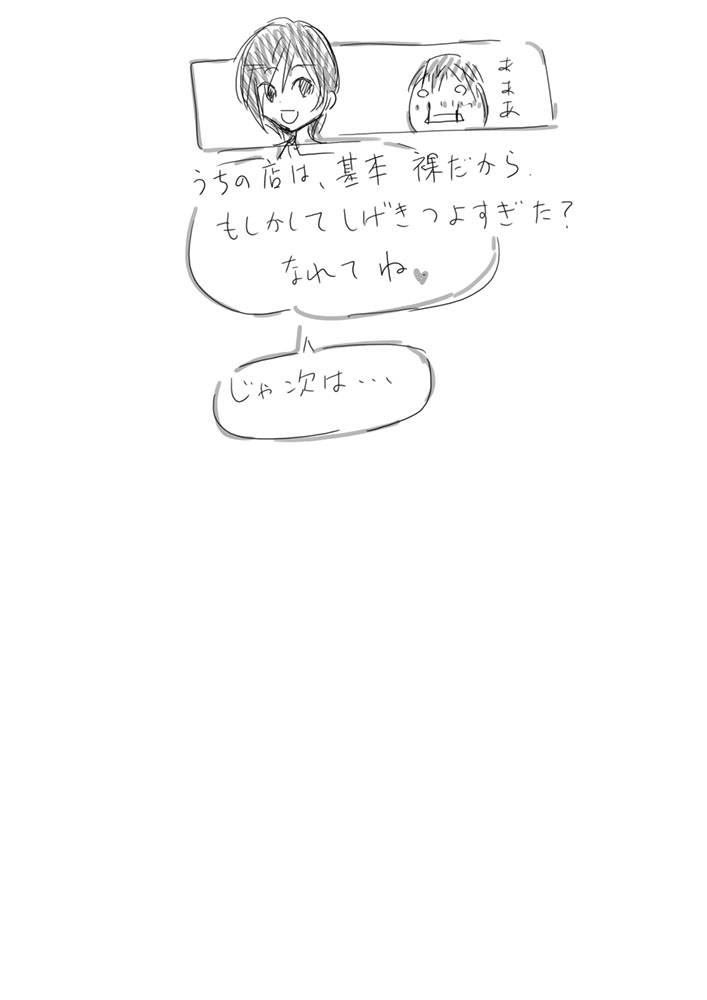 あああ
うちの店は、基本 裸だから
もしかして しげきつよすぎた？
なれてね♥
じゃ次は・・・